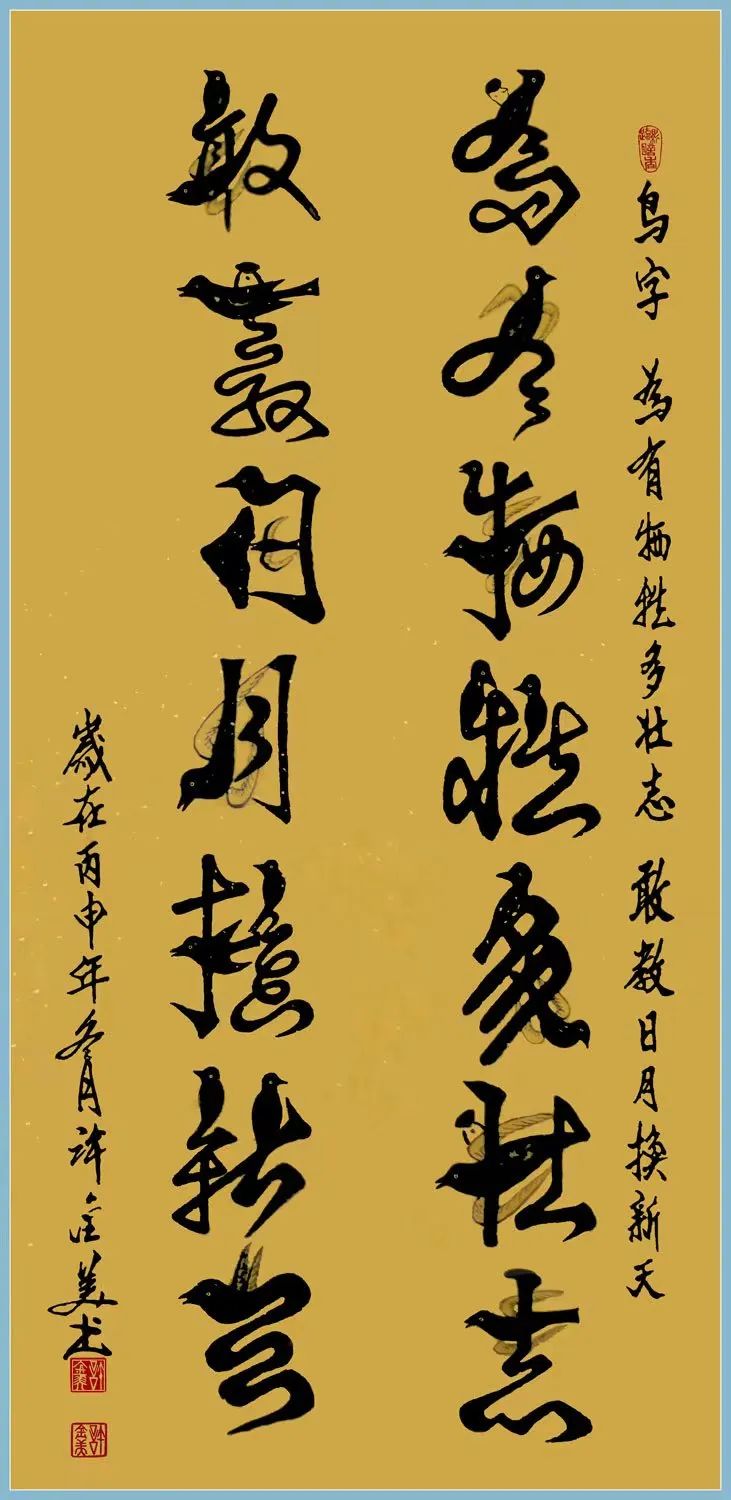 鸟字 為有牺牲多壮志 敢教日月换新天
為有牺牲多壮志
敢教日月换新天
歲在丙申年冬月許金美书
許金美